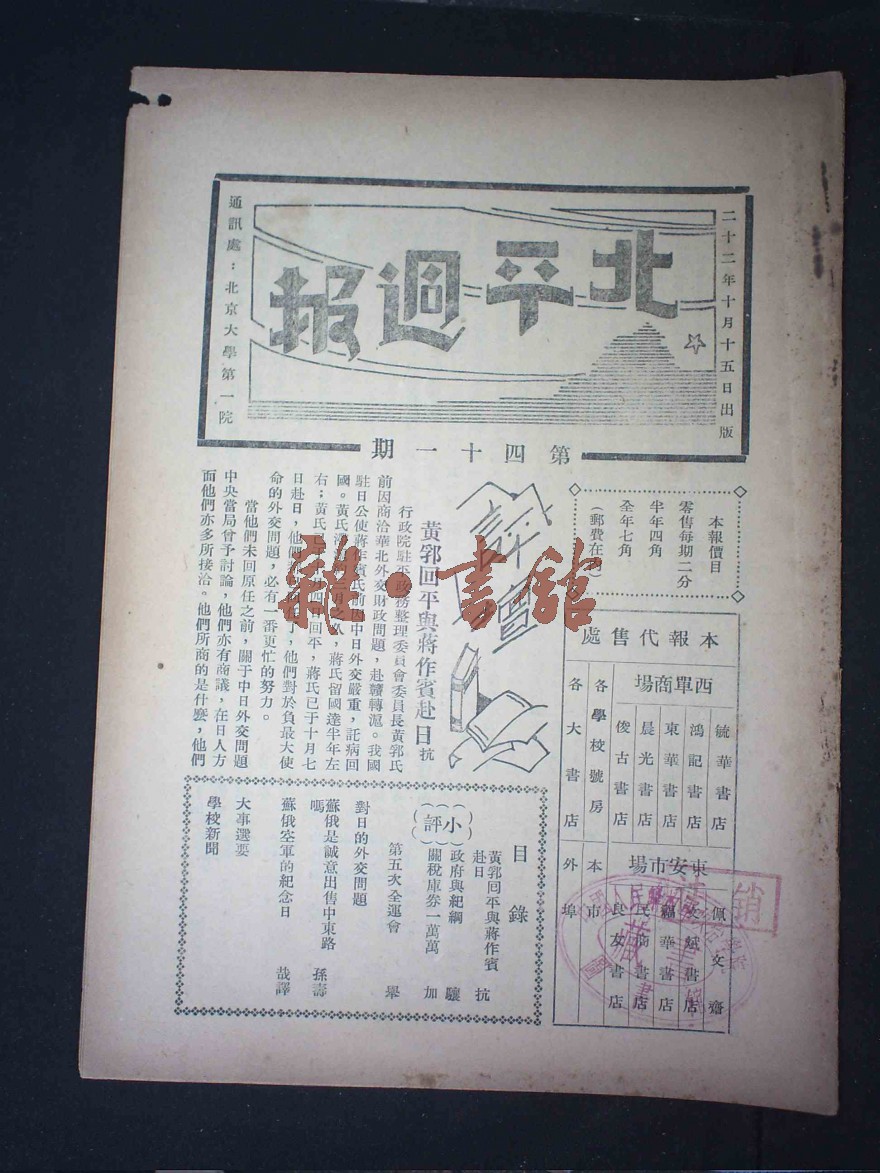 二十二年十月十五日出版
北平週報
通訊處：北京大學第一院
第四十一期
本報價目
零售每期二分
半年四角
全年七角
(郵費在內)
評壇
黃郛回平與蔣作賓赴日 抗
行政院駐平政務整理委員會委員長黃郛氏
前因商洽華北外交財政問題，赴贛轉滬。我國
駐日公使蔣作賓氏前因中日外交嚴重，託病回
國。黃氏
，蔣氏留國達半年左
右；黃氏
四日回平，蔣氏已于十月七
日赴日，他們
了，他們對於負最大使
命的外交問題，必有一番更忙的努力。
當他們未回原任之前，關于中日外交問題
中央當局曾予討論，他們亦有商議，在日人方
面他們亦多所接洽。他們所商的是什麼，他們
本報代售處
西單商場
毓華書店
鴻記書店
東華書店
晨光書店
俊古書店
各學校號房
各大書店
東安市場
佩文齋
福華書店
民商書店
良友書店
本市
外埠
註銷
雅·書館
目錄
小評
黃郛回平與蔣作賓赴日 抗
政府與紀綱 驤
關稅庫券一萬萬 加
第五次全運會 舉
對日的外交問題
蘇俄是誠意出售中東路嗎 孫壽
蘇俄空軍的紀念日 哉譯
大事選要
學校新聞